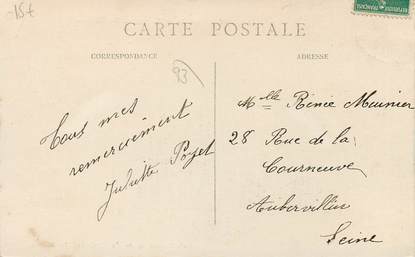 -15€
CARTE POSTALE
CORRESPONDANCE
ADRESSE
93
Tous mes
remerciement
Juliette Poyet
Melle Rénée Meunier
28 Rue de la
Courneuve
Aubervillier
Seine